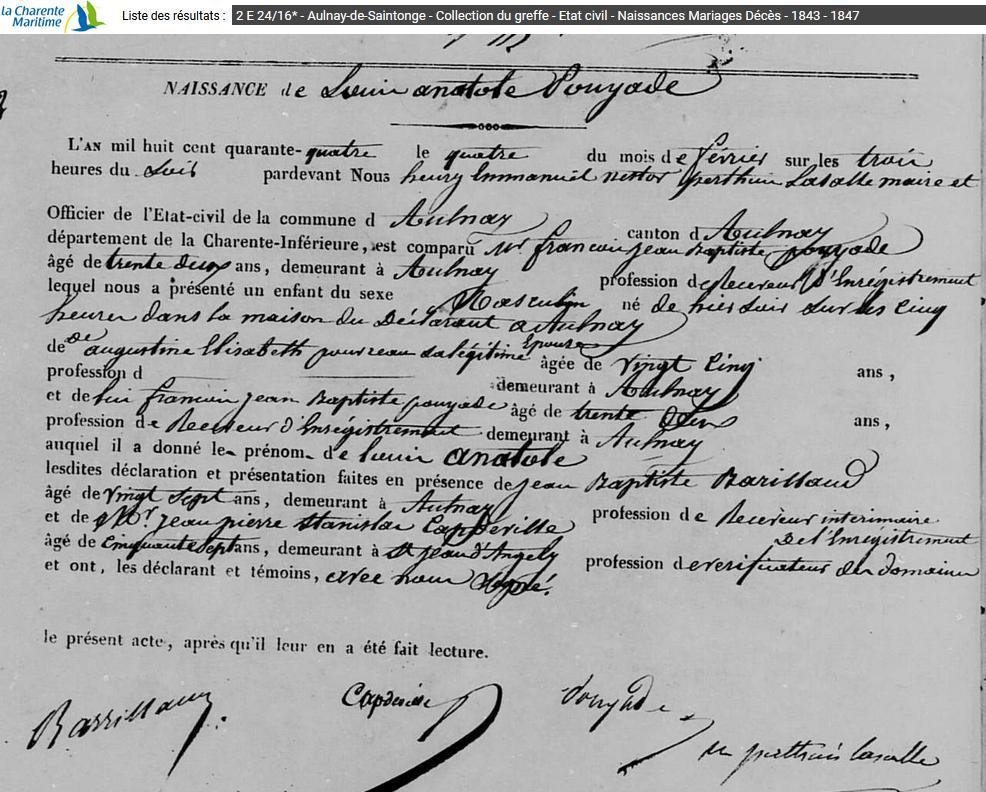 la Charente
Maritime
Liste des résultats :
2 E 24/16* - Aulnay-de-Saintonge - Collection du greffe - Etat civil - Naissances Mariages Décès - 1843 - 1847
NAISSANCE de Louis anatole Pouyade
L'AN mil huit cent quarante-quatre le quatre du mois de février sur les trois
heures du Soir pardevant Nous henry Emmanuel nestor perthuis Lasalle maire et
Officier de l'Etat-civil de la commune d Aulnay canton d Aulnay
département de la Charente-Inférieure, est comparu Mr françois jean Baptiste pouyade
âgé de trente deux ans, demeurant à Aulnay profession de Receveur d'Enrégistrement
lequel nous a présenté un enfant du sexe Masculin né de hier soir sur les cinq
heures dans la maison du Déclarant a Aulnay
de De augustine Elisabeth pouvreau sa légitime Epouse âgée de vingt Cinq ans,
profession d demeurant à Aulnay
et de lui françois jean Baptiste pouyade âgé de trente deux ans,
profession de Receveur d'Enrégistrement demeurant à Aulnay
auquel il a donné le prénom de Louis anatole
lesdites déclaration et présentation faites en présence de jean Baptiste Barillaud
âgé de vingt Sept ans, demeurant à Aulnay profession de Receveur interimaire
De l'Enrégistrement
et de Mr jean pierre stanislas Capdeville
âgé de Cinquante sept ans, demeurant à St jean d'Angely profession de verificateur des domaines
et ont, les déclarant et témoins, avec nous signé.
le présent acte, après qu'il leur en a été fait lecture.
Barrillaud Capdeville Pouyade
perthuis lasalle